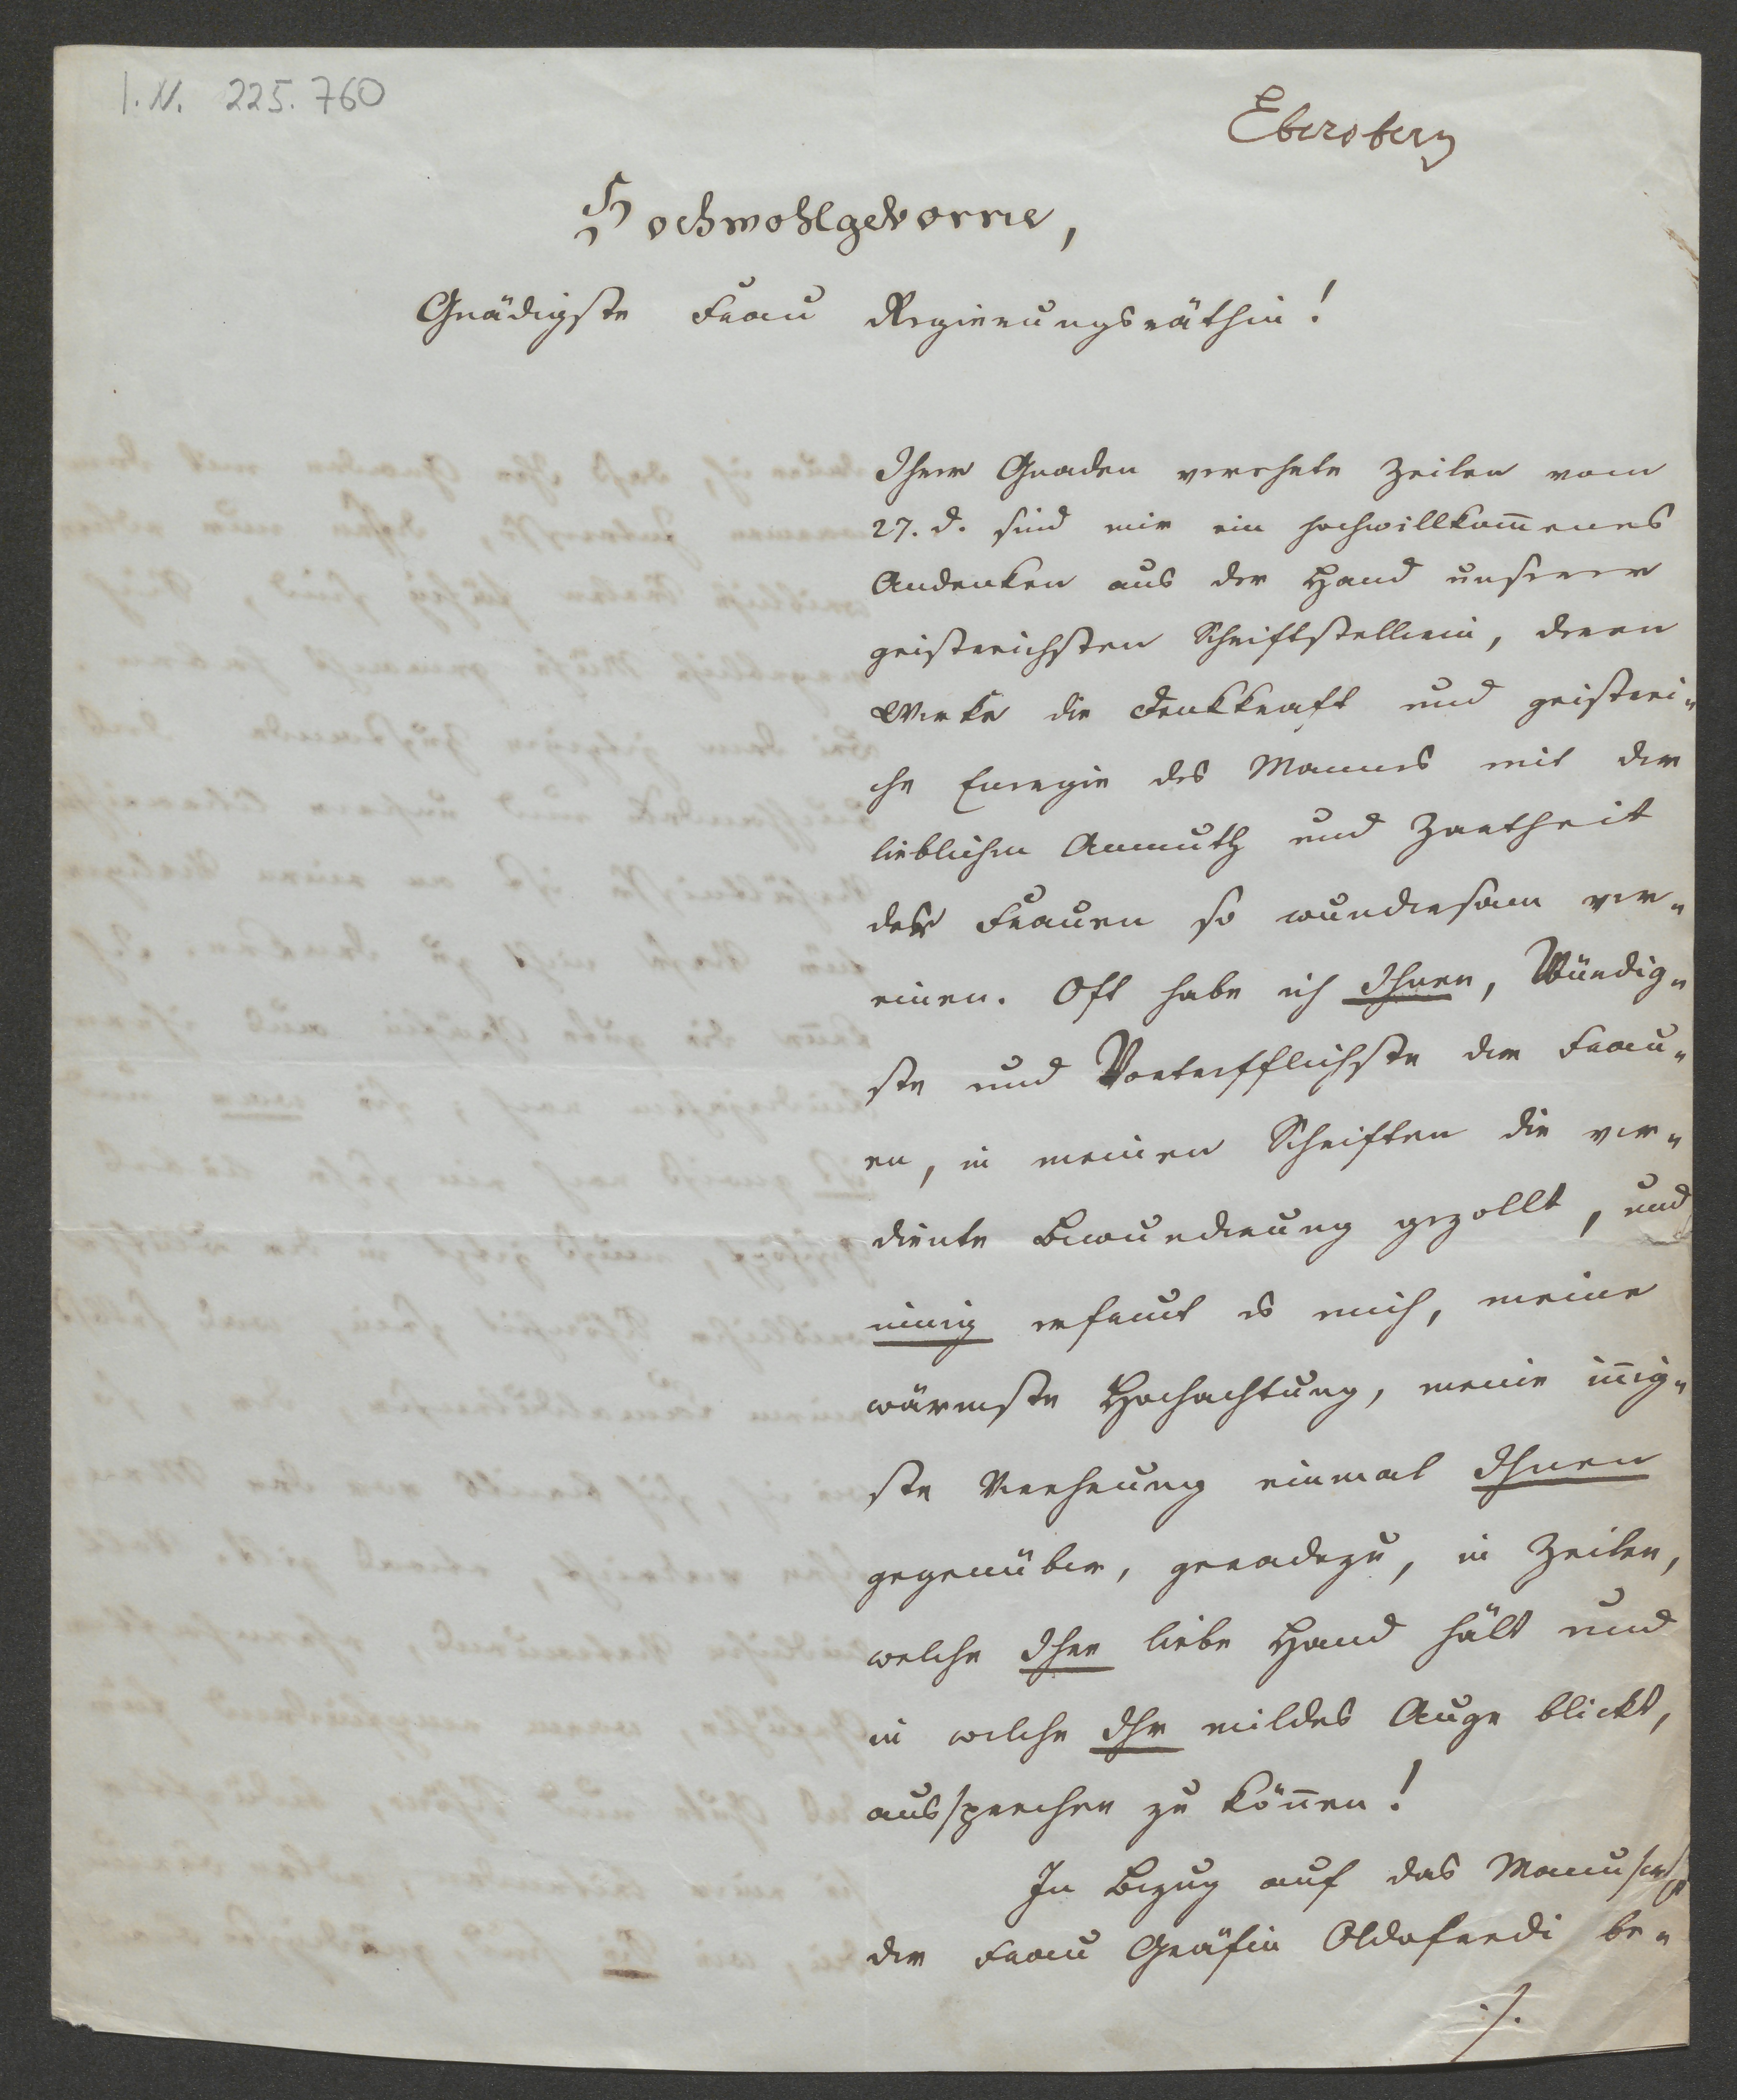 I. N. 225.760
Ebersberg
Hochwohlgeborne,
Gnädigste Frau Regierungsräthin!
Ihrer Gnaden verehrte Zeilen vom
27. d. sind mir ein hochwillkom̄enes
Andenken aus der Hand unserer
geistreichsten Schriftstellerin, deren
Werke die Denkkraft und geistrei-
che Energie des Mannes mit der
lieblichen Anmuth und Zartheit
der Frauen so wundersam ver-
einen. Oft habe ich Ihnen, Würdig-
ste und Vortrefflichste der Frau-
en, in meinen Schriften die ver-
diente Bewunderung gezollt, und
innig erfreut es mich, meine
wärmste Hochachtung, meine in̄ig-
ste Verehrung einmal Ihnen
gegenüber, geradezu, in Zeilen,
welche Ihre liebe Hand hält und
in welche Ihr mildes Auge blickt,
aussprechen zu kön̄en!
In Bezug auf das Manuscrpt
der Frau Gräfin Oldofredi be-
./.